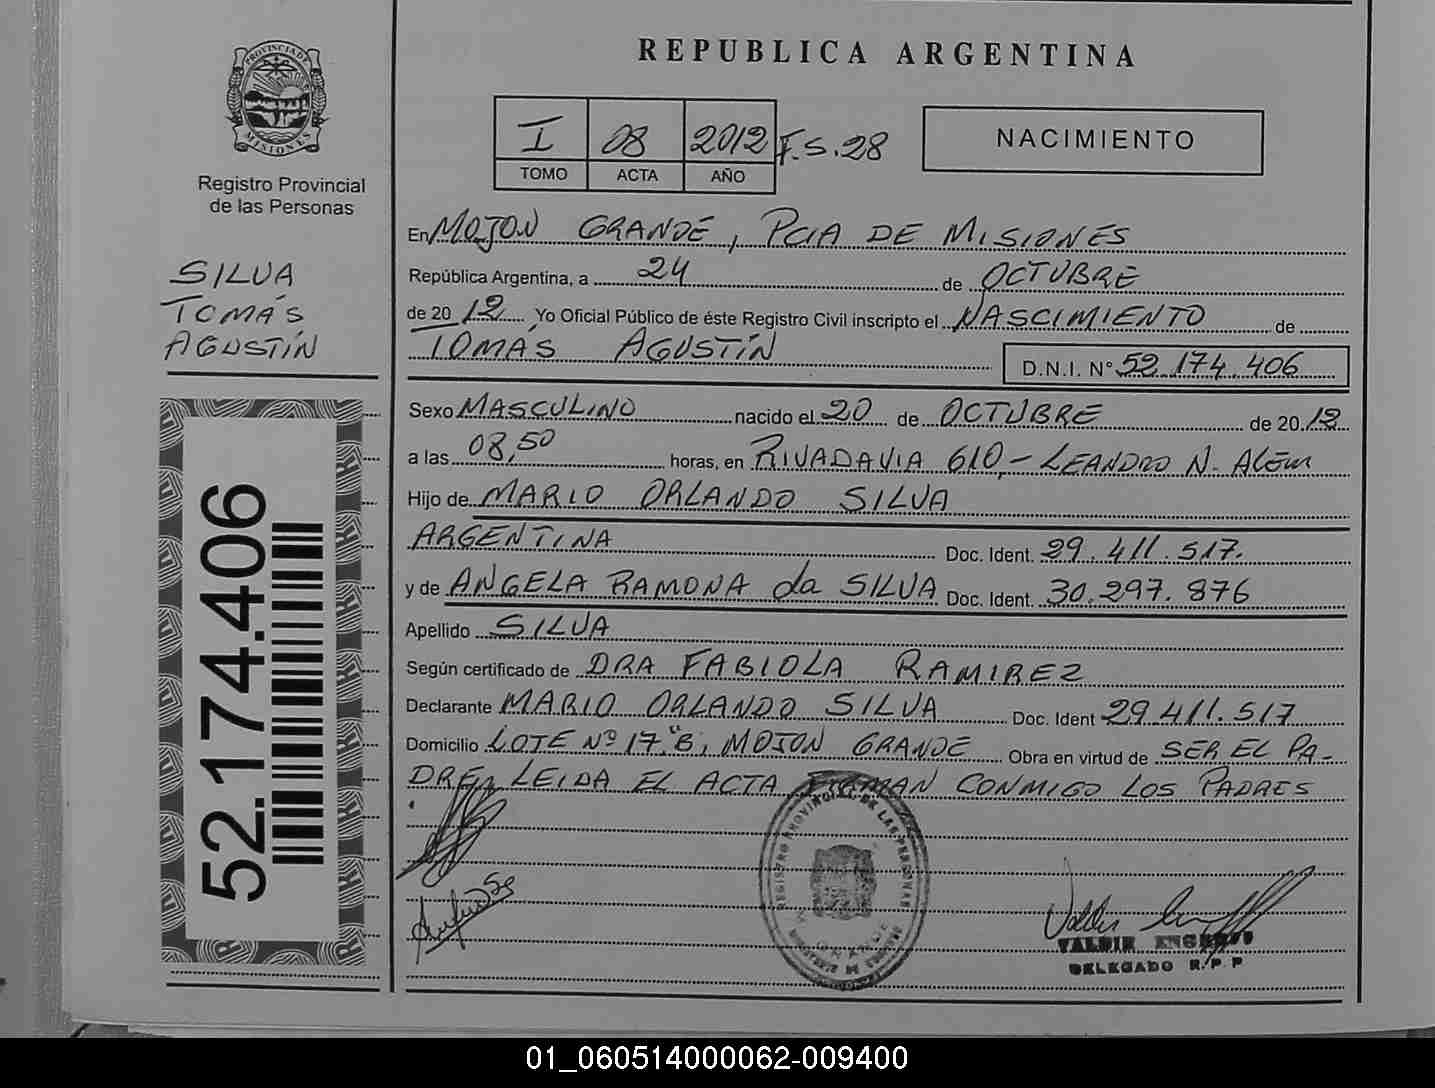 REPUBLICA ARGENTINA
PROVINCIA DE
MISIONES
Registro Provincial
de las Personas
I 08 2012 F.S.28
TOMO ACTA AÑO
NACIMIENTO
SILVA
TOMÁS
AGUSTÍN
En MOJON GRANDE, PCIA DE MISIONES
República Argentina, a 24 de OCTUBRE
de 20 12 Yo Oficial Público de éste Registro Civil inscripto el NASCIMIENTO de
TOMÁS AGUSTÍN D.N.I. N° 52.174.406
Sexo MASCULINO nacido el 20 de OCTUBRE de 20 12
a las 08,50 horas, en RIVADAVIA 610,- LEANDRO N. ALEM
Hijo de MARIO ORLANDO SILVA
ARGENTINA Doc. Ident. 29.411.517.
y de ANGELA RAMONA da SILVA Doc. Ident. 30.297.876
Apellido SILVA
Según certificado de DRA FABIOLA RAMIREZ
Declarante MARIO ORLANDO SILVA Doc. Ident 29 411.517
Domicilio LOTE Nº 17 "B, MOJON GRANDE Obra en virtud de SER EL PA-
DRE, LEIDA EL ACTA FIRMAN CONMIGO LOS PADRES
52.174.406
REGISTRO PROVINCIAL DE LAS PERSONAS
MINISTERIO DE GOBIERNO
VALDIR
DELEGADO R.P.P
01_060514000062-009400